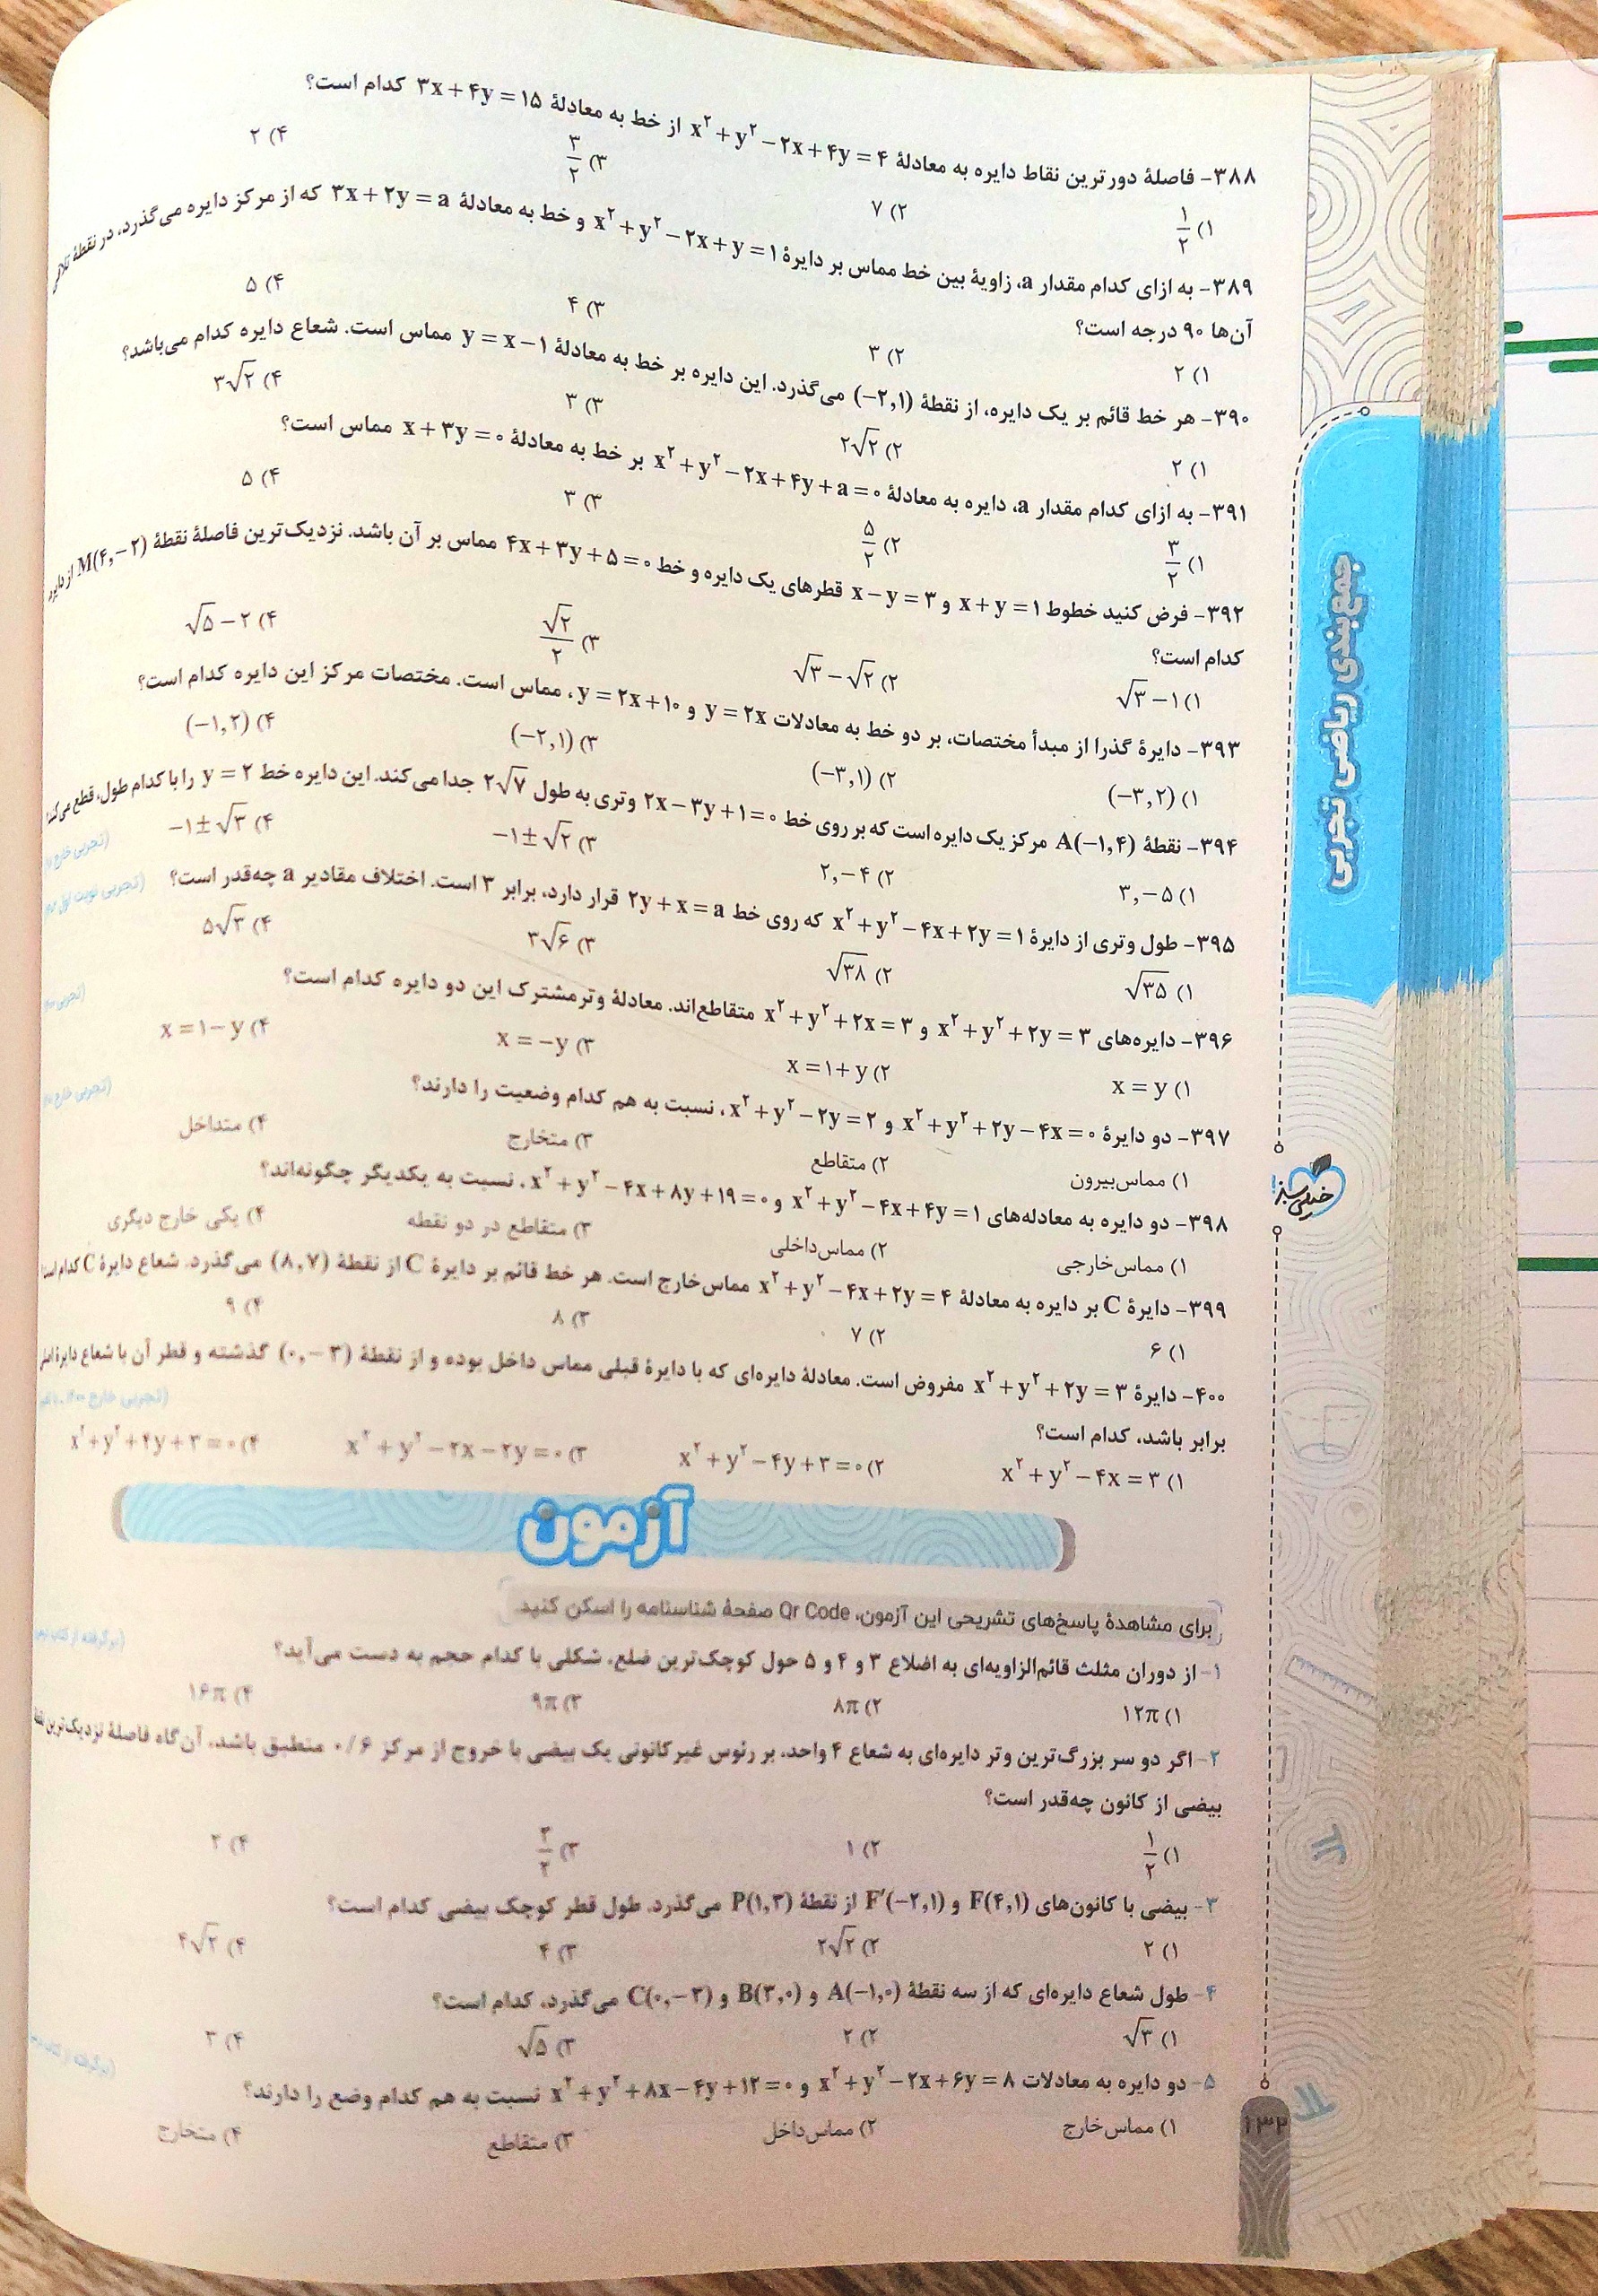 ۳۸۸- فاصلهٔ دورترین نقاط دایره به معادلهٔ x²+y²-۲x+۴y=۴ از خط به معادلهٔ ۳x+۴y=۱۵ کدام است؟
۱) ۱/۲ ۲) ۷ ۳) ۳/۲ ۴) ۲
۳۸۹- به ازای کدام مقدار a، زاویهٔ بین خط مماس بر دایرهٔ x²+y²-۲x+y=۱ و خط به معادلهٔ ۳x+۲y=a که از مرکز دایره می‌گذرد، در نقطهٔ تلاقی
آن‌ها ۹۰ درجه است؟
۱) ۲ ۲) ۳ ۳) ۴ ۴) ۵
۳۹۰- هر خط قائم بر یک دایره، از نقطهٔ (-۲,۱) می‌گذرد. این دایره بر خط به معادلهٔ y=x-۱ مماس است. شعاع دایره کدام می‌باشد؟
۱) ۲ ۲) ۲√۲ ۳) ۳ ۴) ۳√۲
۳۹۱- به ازای کدام مقدار a، دایره به معادلهٔ x²+y²-۲x+۴y+a=۰ بر خط به معادلهٔ x+۳y=۰ مماس است؟
۱) ۳/۲ ۲) ۵/۲ ۳) ۳ ۴) ۵
۳۹۲- فرض کنید خطوط x+y=۱ و x-y=۳ قطرهای یک دایره و خط ۴x+۳y+۵=۰ مماس بر آن باشد. نزدیک‌ترین فاصلهٔ نقطهٔ M(۴,-۲) از دایره
کدام است؟
۱) √۳-۱ ۲) √۳-√۲ ۳) √۲/۲ ۴) √۵-۲
۳۹۳- دایرهٔ گذرا از مبدأ مختصات، بر دو خط به معادلات y=۲x و y=۲x+۱۰، مماس است. مختصات مرکز این دایره کدام است؟
۱) (-۳,۲) ۲) (-۳,۱) ۳) (-۲,۱) ۴) (-۱,۲)
۳۹۴- نقطهٔ A(-۱,۴) مرکز یک دایره است که بر روی خط ۲x-۳y+۱=۰ وتری به طول ۲√۷ جدا می‌کند. این دایره خط y=۲ را با کدام طول، قطع می‌کند؟
(تجربی خارج
۱) ۳,-۵ ۲) ۲,-۴ ۳) -۱±√۲ ۴) -۱±√۳
۳۹۵- طول وتری از دایرهٔ x²+y²-۴x+۲y=۱ که روی خط ۲y+x=a قرار دارد، برابر ۳ است. اختلاف مقادیر a چه‌قدر است؟ (تجربی نوبت اول
۱) √۳۵ ۲) √۳۸ ۳) ۳√۶ ۴) ۵√۳
۳۹۶- دایره‌های x²+y²+۲y=۳ و x²+y²+۲x=۳ متقاطع‌اند. معادلهٔ وتر مشترک این دو دایره کدام است؟ (تجربی
۱) x=y ۲) x=۱+y ۳) x=-y ۴) x=۱-y
۳۹۷- دو دایرهٔ x²+y²+۲y-۴x=۰ و x²+y²-۲y=۲، نسبت به هم کدام وضعیت را دارند؟ (تجربی خارج
۱) مماس بیرون ۲) متقاطع ۳) متخارج ۴) متداخل
۳۹۸- دو دایره به معادله‌های x²+y²-۴x+۴y=۱ و x²+y²-۴x+۸y+۱۹=۰، نسبت به یکدیگر چگونه‌اند؟
۱) مماس خارجی ۲) مماس داخلی ۳) متقاطع در دو نقطه ۴) یکی خارج دیگری
۳۹۹- دایرهٔ C بر دایره به معادلهٔ x²+y²-۴x+۲y=۴ مماس خارج است. هر خط قائم بر دایرهٔ C از نقطهٔ (۸,۷) می‌گذرد. شعاع دایرهٔ C کدام است؟
۱) ۶ ۲) ۷ ۳) ۸ ۴) ۹
۴۰۰- دایرهٔ x²+y²+۲y=۳ مفروض است. معادلهٔ دایره‌ای که با دایرهٔ قبلی مماس داخل بوده و از نقطهٔ (۰,-۳) گذشته و قطر آن با شعاع دایرهٔ اصلی
برابر باشد، کدام است؟ (تجربی خارج ۱۴۰۰
۱) x²+y²-۴x=۳ ۲) x²+y²-۴y+۳=۰ ۳) x²+y²-۲x-۲y=۰ ۴) x²+y²+۴y+۳=۰
آزمون
برای مشاهدهٔ پاسخ‌های تشریحی این آزمون، Qr Code صفحهٔ شناسنامه را اسکن کنید.
۱- از دوران مثلث قائم‌الزاویه‌ای به اضلاع ۳ و ۴ و ۵ حول کوچک‌ترین ضلع، شکلی با کدام حجم به دست می‌آید؟ (برگرفته از کتاب درسی)
۱) ۱۲π ۲) ۸π ۳) ۹π ۴) ۱۶π
۲- اگر دو سر بزرگ‌ترین وتر دایره‌ای به شعاع ۴ واحد، بر رئوس غیرکانونی یک بیضی با خروج از مرکز ۰/۶ منطبق باشد، آن‌گاه فاصلهٔ نزدیک‌ترین نقطهٔ
بیضی از کانون چه‌قدر است؟
۱) ۱/۲ ۲) ۱ ۳) ۳/۲ ۴) ۲
۳- بیضی با کانون‌های F(۴,۱) و F′(-۲,۱) از نقطهٔ P(۱,۳) می‌گذرد. طول قطر کوچک بیضی کدام است؟
۱) ۲ ۲) ۲√۲ ۳) ۴ ۴) ۴√۲
۴- طول شعاع دایره‌ای که از سه نقطهٔ A(-۱,۰) و B(۳,۰) و C(۰,-۳) می‌گذرد، کدام است؟
۱) √۳ ۲) ۲ ۳) √۵ ۴) ۳
۵- دو دایره به معادلات x²+y²-۲x+۶y=۸ و x²+y²+۸x-۴y+۱۲=۰ نسبت به هم کدام وضع را دارند؟
۱) مماس خارج ۲) مماس داخل ۳) متقاطع ۴) متخارج
جمع‌بندی ریاضی تجربی
خیلی سبز
۱۳۲